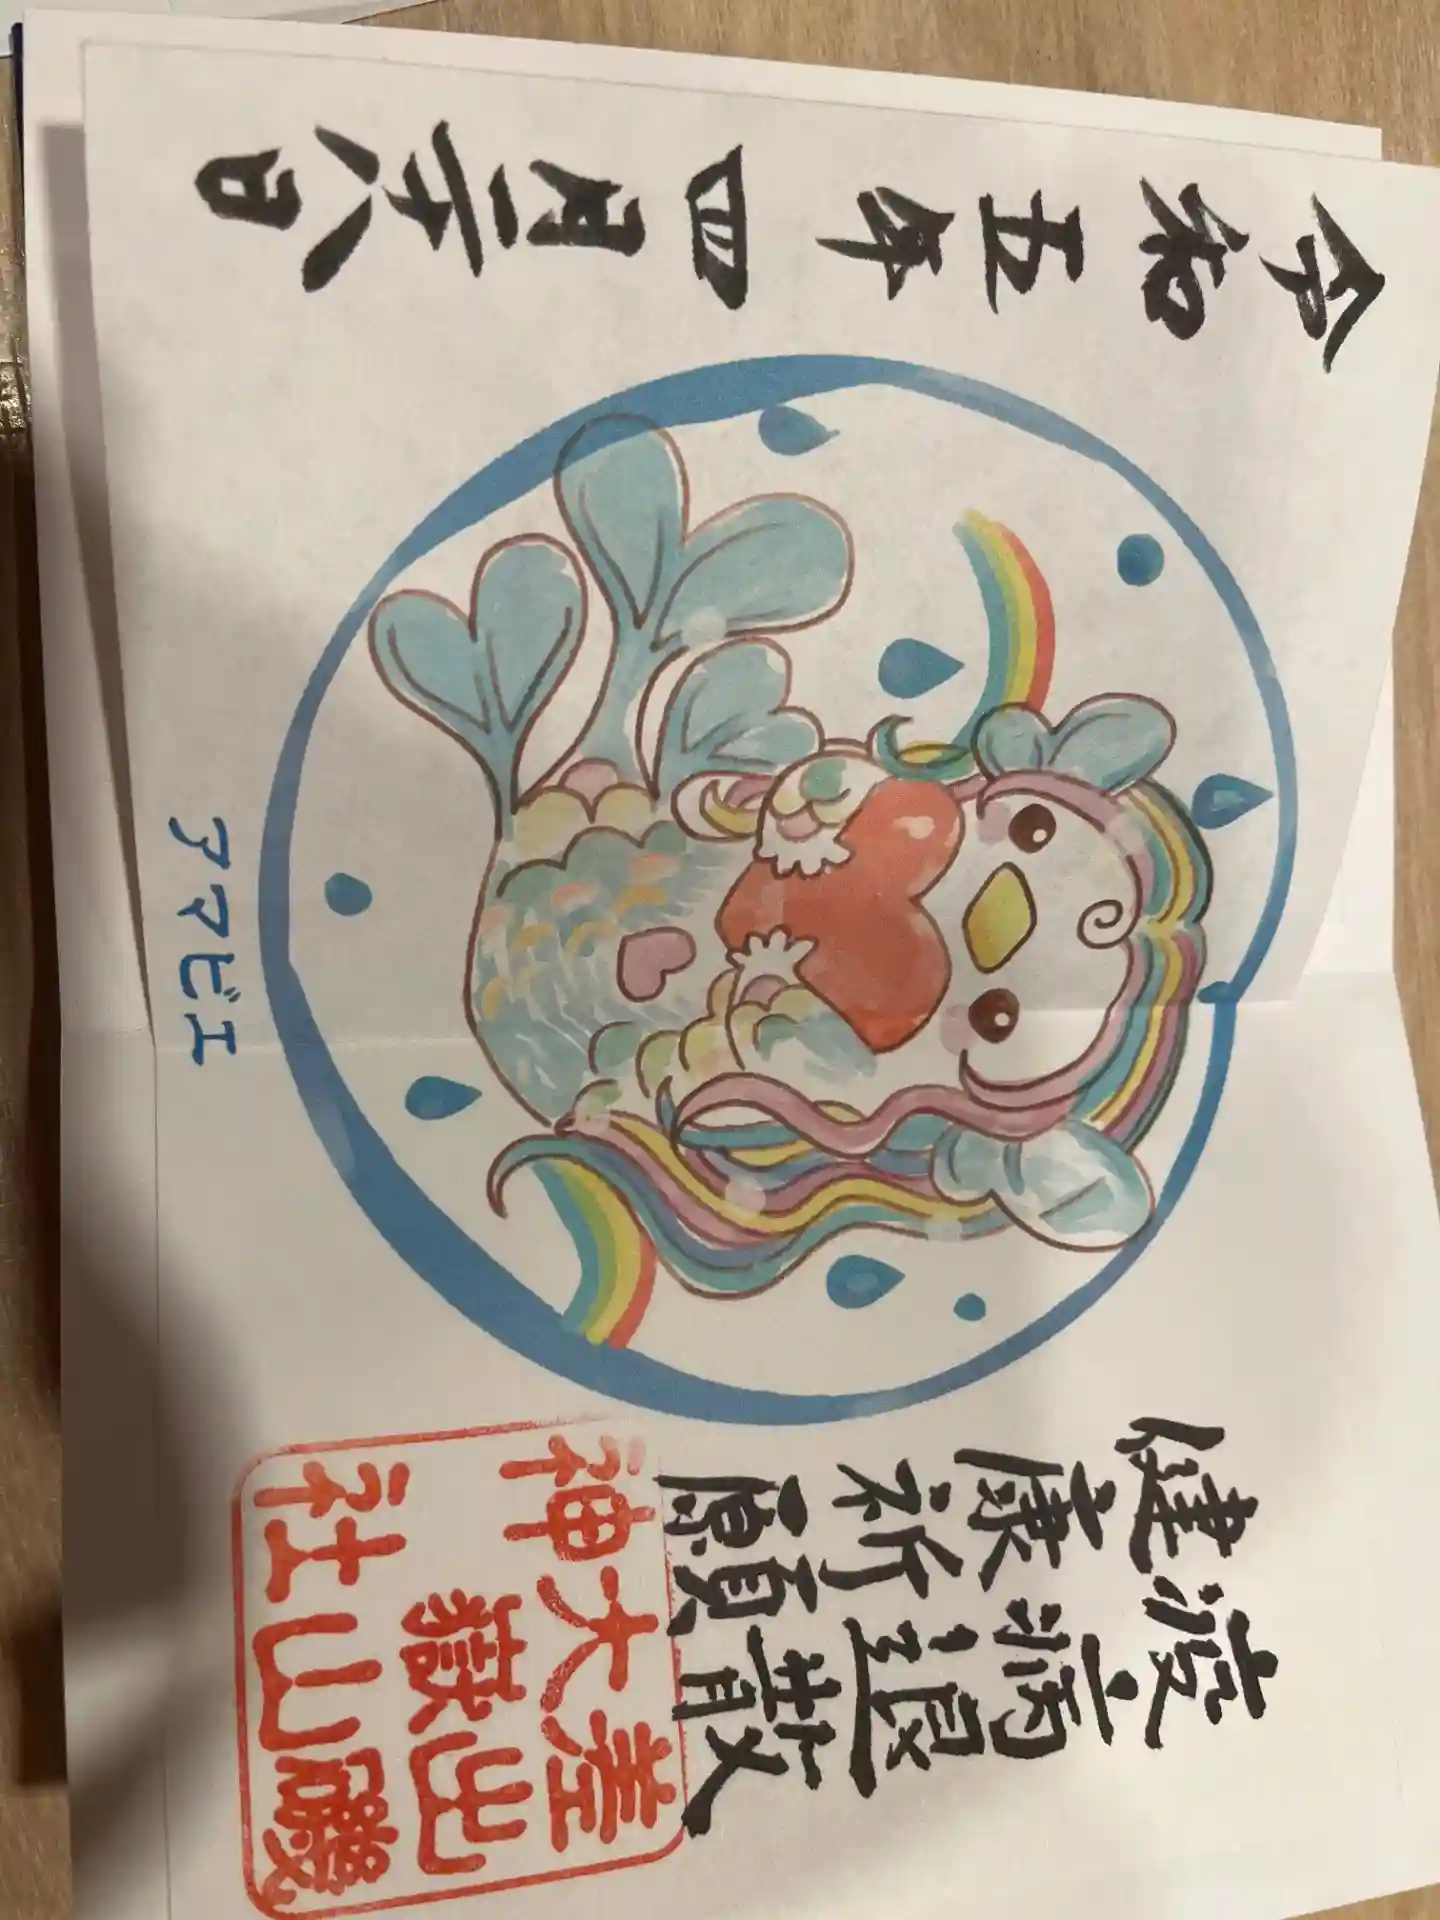 疫病退散
健康祈願
差出磯
大嶽山
神社
アマビエ
令和五年四月二十八日